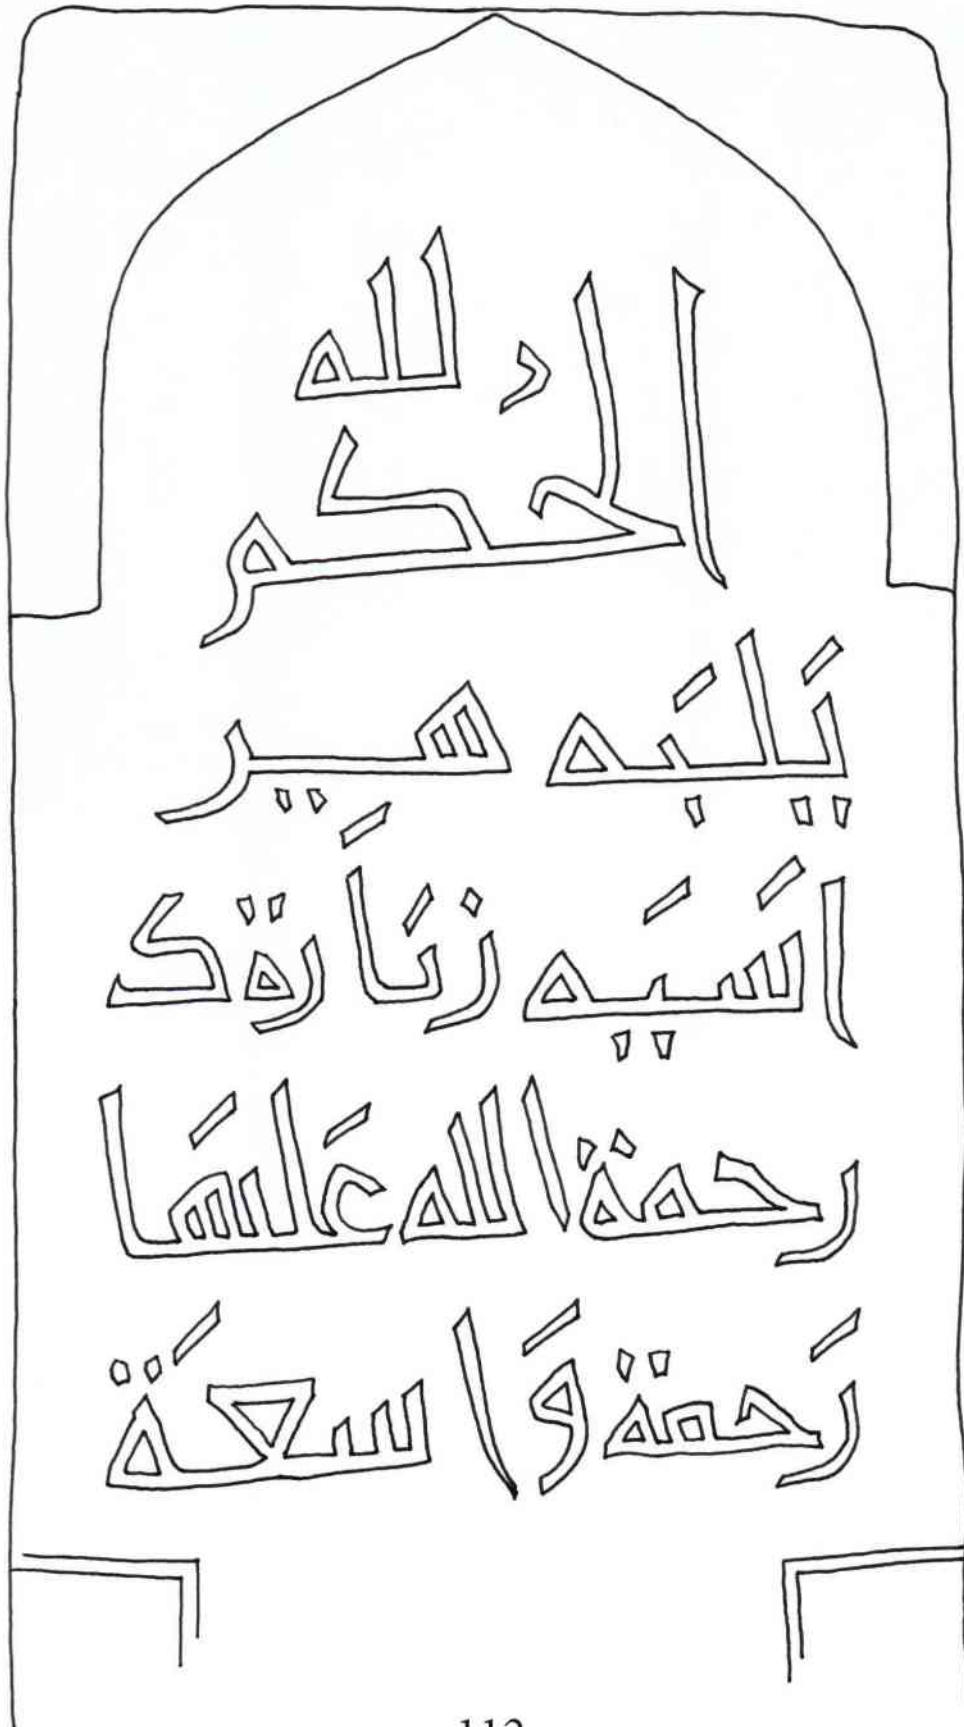 الحكم لله
يَلبَه هير
اسَيَه زىَارة ك
رحمة الله عَلىهَا
رَحمة وَاسعَة